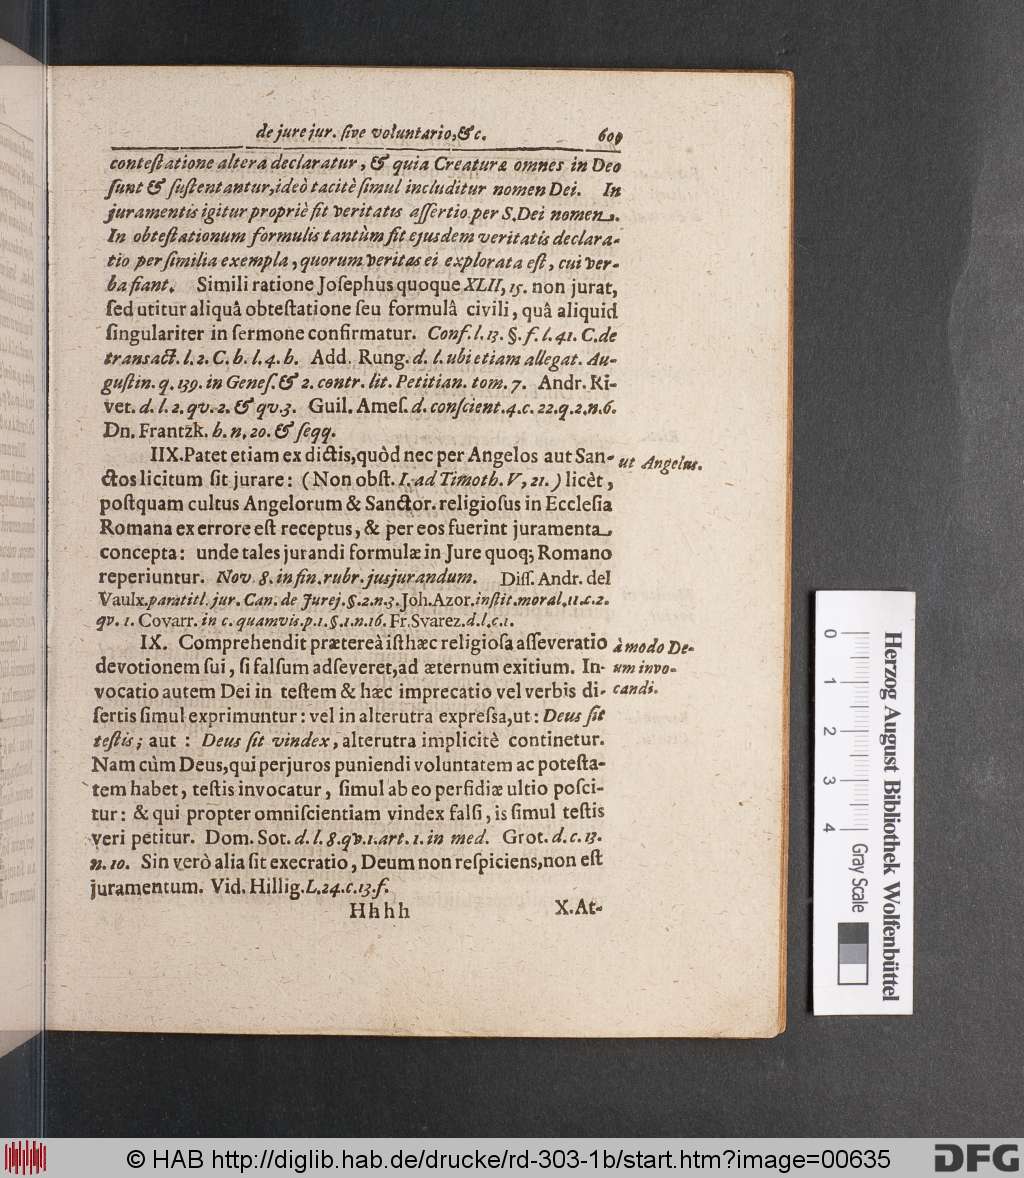 de jure jur. ſive voluntario, &c. 609
conteſtatione altera declaratur, & quia Creaturæ omnes in Deo
ſunt & ſuſtentantur, ideò tacitè ſimul includitur nomen Dei. In
juramentis igitur propriè fit veritatis aſſertio per S. Dei nomen.
In obteſtationum formulis tantùm fit ejusdem veritatis declara-
tio per ſimilia exempla, quorum veritas ei explorata eſt, cui ver-
ba fiant. Simili ratione Joſephus quoque XLII, 15. non jurat,
ſed utitur aliquâ obteſtatione ſeu formulâ civili, quâ aliquid
ſingulariter in ſermone confirmatur. Conf. l. 13. §. f. l. 41. C. de
transact. l. 2. C. b. l. 4. b. Add. Rung. d. l. ubi etiam allegat. Au-
guſtin. q. 139. in Geneſ. & 2. contr. lit. Petitian. tom. 7. Andr. Ri-
vet. d. l. 2. qv. 2. & qv. 3. Guil. Ameſ. d. conſcient. 4. c. 22. q. 2. n. 6.
Dn. Frantzk. b. n. 20. & ſeqq.
IIX. Patet etiam ex dictis, quòd nec per Angelos aut San-
ut Angelus.
ctos licitum ſit jurare: (Non obſt. I. ad Timoth. V, 21.) licèt,
poſtquam cultus Angelorum & Sanctor. religioſus in Eccleſia
Romana ex errore eſt receptus, & per eos fuerint juramenta
concepta: unde tales jurandi formulæ in Jure quoq; Romano
reperiuntur. Nov. 8. in fin. rubr. jusjurandum. Diſſ. Andr. del
Vaulx. paratitl. jur. Can. de Jurej. §. 2. n. 3. Joh. Azor. inſtit. moral. 11. c. 2.
qv. 1. Covarr. in c. quamvis. p. 1. §. 1. n. 16. Fr. Svarez. d. l. c. 1.
IX. Comprehendit prætereà iſthæc religioſa aſſeveratio
à modo De-
devotionem ſui, ſi falſum adſeveret, ad æternum exitium. In-
um invo-
vocatio autem Dei in teſtem & hæc imprecatio vel verbis di-
candi.
ſertis ſimul exprimuntur: vel in alterutra expreſſa, ut: Deus ſit
teſtis; aut : Deus ſit vindex, alterutra implicitè continetur.
Nam cùm Deus, qui perjuros puniendi voluntatem ac poteſta-
tem habet, teſtis invocatur, ſimul ab eo perfidiæ ultio poſci-
tur: & qui propter omniſcientiam vindex falſi, is ſimul teſtis
veri petitur. Dom. Sot. d. l. 8. qv. 1. art. 1. in med. Grot. d. c. 13.
n. 10. Sin verò alia ſit execratio, Deum non reſpiciens, non eſt
juramentum. Vid. Hillig. L. 24. c. 13. f.
Hhhh X. At-
0 1 2 3 4 Gray Scale
Herzog August Bibliothek Wolfenbüttel
© HAB http://diglib.hab.de/drucke/rd-303-1b/start.htm?image=00635
DFG